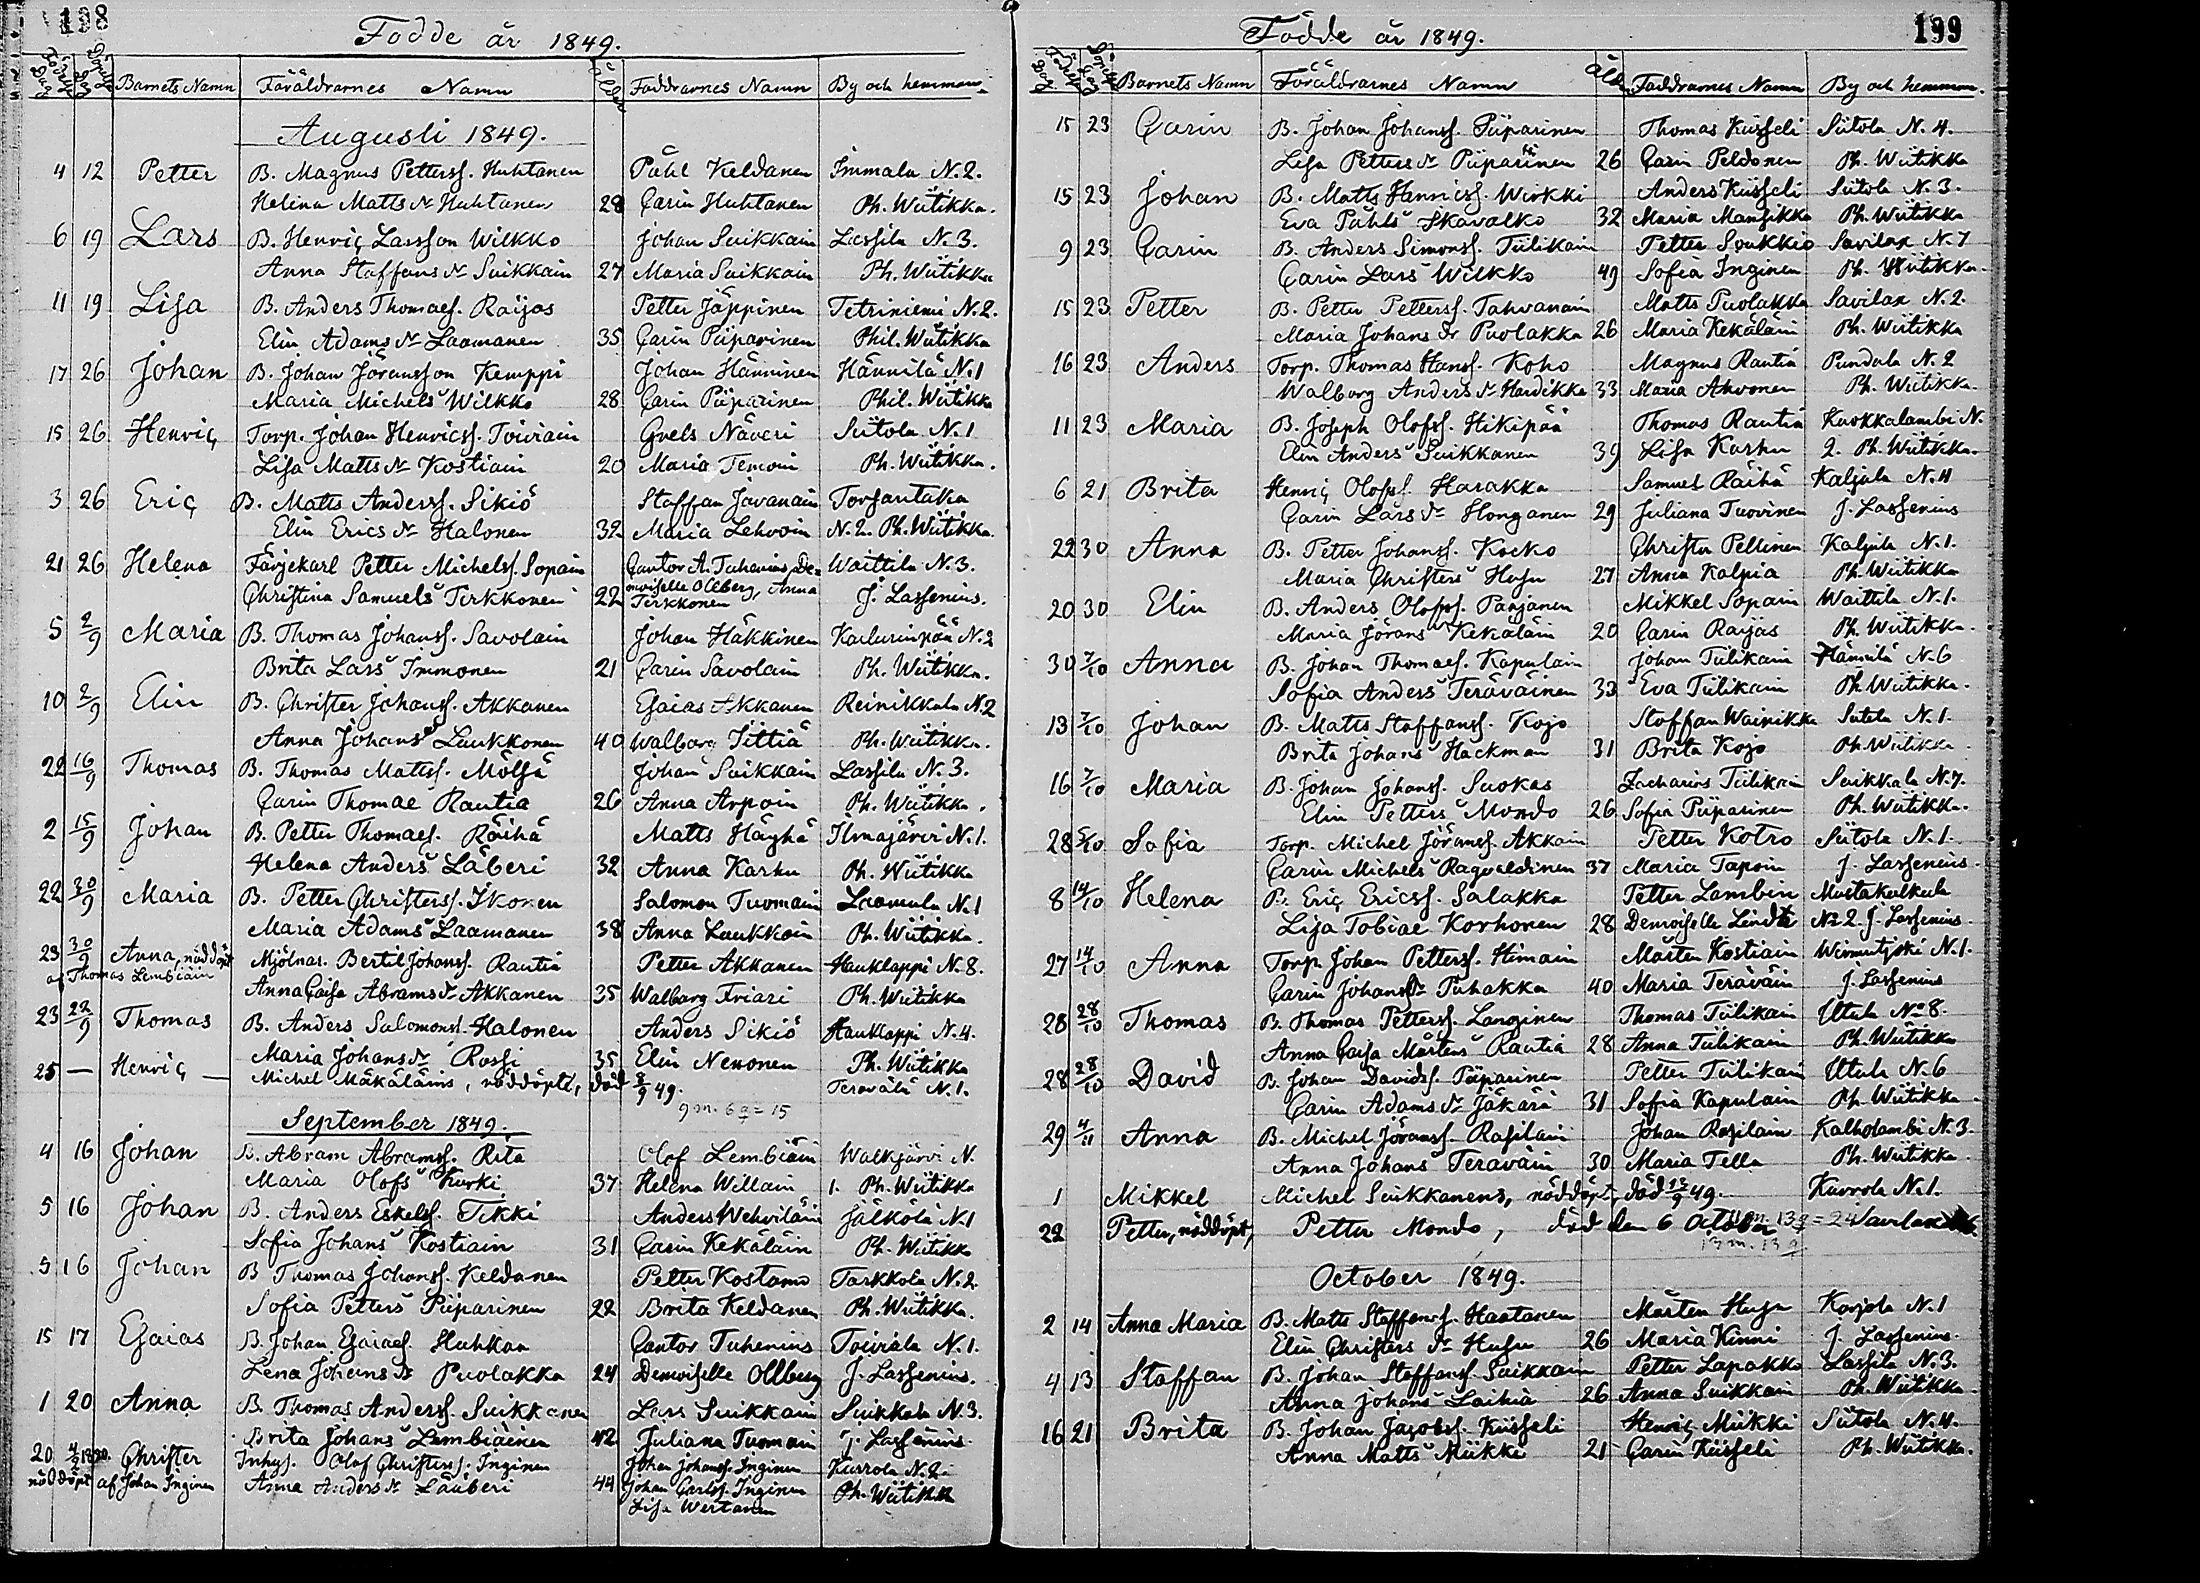 198
Födde år 1849.
Födelse Dag Döpelse Dag Barnets Namn Föräldrarnes Namn ålder Faddrarnes Namn By och hemman.
Augusti 1849.
4 12 Petter B. Magnus Petterss. Huhtanen Påhl Keldanen Immala N. 2.
Helina Matts dr Huhtanen 28 Carin Huhtanen Ph. Wiitikka.
6 19 Lars B. Henric Larsson Wilkko Johan Suikkain Lassila N. 3.
Anna Staffans dr Suikkain 27 Maria Suikkain Ph. Wiitikka
11 19 Lisa B. Anders Thomaes. Raijas Petter Jäppinen Tetriniemi N. 2.
Elin Adams dr Laamanen 35 Carin Piiparinen Phil. Wiitikka
17 26 Johan B. Johan Jöransson Kemppi Johan Hänninen Hännilä N. 1
Maria Michels Wilkko 28 Carin Piiparinen Phil. Wiitikka
15 26 Henric Torp. Johan Henricss. Toiviain Grels Näveri Siitola N. 1
Lisa Matts dr Kostiain 20 Maria Temoin Ph. Wiitikka.
3 26 Eric B. Matts Anderss. Sikiö Staffan Javanain Torsantaka
Elin Erics dr Halonen 32 Maria Lehvoin N. 2. Ph. Wiitikka.
21 26 Helena Färjekarl Petter Michelss. Sopain Cantor A. Tuhenius, De= Waittila N. 3.
moiselle Ollberg, Anna
Christina Samuels Tirkkonen 22 Tirkkonen J. Lassenius.
5 2/9 Maria B. Thomas Johanss. Savolain Johan Häkkinen Kailurinpää N. 2
Brita Lars Immonen 21 Carin Savolain Ph. Wiitikka.
10 2/9 Elin B. Christer Johanss. Akkanen Esaias Akkanen Reinikkala N. 2
Anna Johans Laukkonen 40 Walborg Tittiä Ph. Wiitikka.
22 16/9 Thomas B. Thomas Mattss. Mölsä Johan Suikkain Lassila N. 3.
Carin Thomae Rautia 26 Anna Arpoin Ph. Wiitikka.
2 15/9 Johan B. Petter Thomaes. Räihä Matts Häyhä Ilmajärvi N. 1.
Helena Anders Läberi 32 Anna Karhu Ph. Wiitikka
22 30/9 Maria B. Petter Christerss. Ikonen Salomon Tuomain Laamala N. 1
Maria Adams Laamanen 38 Anna Laukkoin Ph. Wiitikka.
23 30/9 Anna, nöddöpt Mjölnar. Bertil Johanss. Rautia Petter Akkanen Hauklappi N. 8.
af Thomas Lembiäin
Anna Caisa Abrams dr Akkanen 35 Walborg Friari Ph. Wiitikka
23 22/9 Thomas B. Anders Salomonss. Halonen Anders Sikiö Hauklappi N. 4.
Maria Johans dr Rossi 35 Elin Nenonen Ph. Wiitikka
25 — Henric — Michel Mäkäläins, nöddöpt, död 2/9 49. Teravälä N. 1.
9 m. 6 q = 15
September 1849.
4 16 Johan B. Abram Abramss. Rita Olof Lembiäin Walkjärvi N.
Maria Olofs Kurki 37 Helena Willain 1. Ph. Wiitikka
5 16 Johan B. Anders Eskelss. Tikki Anders Wehviläin Jälkölä N. 1
Sofia Johans Kostiain 31 Carin Kekäläin Ph. Wiitikka
5 16 Johan B Thomas Johanss. Keldanen Petter Kostamo Tarkkola N. 2.
Sofia Petters Piiparinen 22 Brita Keldanen Ph. Wiitikka.
15 17 Esaias B. Johan Esaiaes. Huhkar Cantor Tuhenius Toiviala N. 1.
Lena Johans dr Puolakka 24 Demoiselle Ollberg J. Lassenius.
1 20 Anna B. Thomas Anderss. Suikkanen Lars Suikkain Suikkala N. 3.
Brita Johans Lembiäinen 42 Juliana Tuomain J. Lassenius.
20 Christer Inhys. Olof Christerss. Inginen Johan Johanss. Inginen Kurrola N. 2.
nöddöpt af Johan Inginen Anna Anders dr Läuberi 44 Johan Carlss. Inginen Ph. Wiitikka
Lisa Wertanen
199
Födde år 1849.
Födelse Dag Döpelse Dag Barnets Namn Föräldrarnes Namn ålder Faddrarnes Namn By och hemman.
15 23 Carin B. Johan Johanss. Piiparinen Thomas Kiisseli Siitola N. 4.
Lisa Petters dr Piiparinen 26 Carin Peldonen Ph. Wiitikka
15 23 Johan B. Matts Hanniss. Wirkki Anders Kiisseli Siitola N. 3.
Eva Påhls Skavalko 32 Maria Mansikka Ph. Wiitikka
9 23 Carin B. Anders Simonss. Tiilikain Petter Soukkio Savilax N. 7
Carin Lars Wilkko 49 Sofia Inginen Ph. Wiitikka.
15 23 Petter B. Petter Petterss. Tahvanain Matts Puolakka Savilax N. 2.
Maria Johans dr Puolakka 26 Maria Kekäläin Ph. Wiitikka
16 23 Anders Torp. Thomas Hanss. Koho Magnus Rautia Pundala N. 2
Walborg Anders dr Hardikka 33 Maria Ahvonen Ph. Wiitikka.
11 23 Maria B. Joseph Olofss. Hikipää Thomas Rautia Kuokkalambi N.
Elin Anders Suikkanen 39 Lisa Karhu 2. Ph. Wiitikka.
6 21 Brita Henric Olofss. Harakka Samuel Räihä Kaljula N. 4
Carin Lars dr Honganen 29 Juliana Tuovinen J. Lassenius
22 30 Anna B. Petter Johanss. Kocko Christer Pellinen Kaljula N. 1.
Maria Christers Husu 27 Anna Kalpia Ph. Wiitikka
20 30 Elin B. Anders Olofss. Parjanen Mikkel Sopain Waittila N. 1.
Maria Jörans Kekäläin 20 Carin Raijas Ph. Wiitikka.
30 7/10 Anna B. Johan Thomaes. Kapulain Johan Tiilikain Hännilä N. 6
Sofia Anders Teräväinen 33 Eva Tiilikain Ph. Wiitikka.
13 7/10 Johan B. Matts Staffanss. Kojo Staffan Wainikka Siitola N. 1.
Brita Johans Hackman 31 Brita Kojo Ph. Wiitikka
16 7/10 Maria B. Johan Johanss. Suokas Zacharias Tiilikain Suikkala N. 7.
Elin Petters Mondo 26 Sofia Piiparinen Ph. Wiitikka.
28 5/10 Sofia Torp. Michel Jöranss. Akkain Petter Kotro Siitola N. 1.
Carin Michels Ragvaldinen 37 Maria Tapoin J. Lassenius.
8 14/10 Helena B. Eric Ericss. Salakka Petter Lamberi Mustakulkula
Lisa Tobiae Korhonen 28 Demoiselle Lindh N: 2. J. Lassenius.
27 14/10 Anna Torp. Johan Petterss. Himain Mårten Kostiain Wimmutjoki N. 1.
Carin Johans dr Puhakka 40 Maria Teräväin J. Lassenius
28 28/10 Thomas B. Thomas Petterss. Langinen Thomas Tiilikain Utula No 8.
Anna Caisa Mårtens Rautia 28 Anna Tiilikain Ph. Wiitikka
28 28/10 David B. Johan Davidss. Piiparinen Petter Tiilikain Utula N. 6
Carin Adams dr Jäkärä 31 Sofia Kapulain Ph. Wiitikka.
29 4/11 Anna B. Michel Jöranss. Rasilain Johan Rasilain Kalholambi N. 3.
Anna Johans Teräväin 30 Maria Tella Ph. Wiitikka.
1 Mikkel Michel Suikkanens, nöddöpt, död 13/9 49. Kurrola N. 1.
22 Petter, nöddöpt, Petter Mondo, död den 6 October 11 m. 13 q = 24 Savilax
13 m. 13 q
October 1849.
2 14 Anna Maria B. Matts Staffanss. Haatanen Mårten Husu Karjola N. 1
Elin Christers dr Husu 26 Maria Kinni J. Lassenius.
4 13 Staffan B. Johan Staffanss. Suikkain Petter Lapakko Lassila N. 3.
Anna Johans Laihia 26 Anna Suikkain Ph. Wiitikka
16 21 Brita B. Johan Jacobss. Kiisseli Henric Miikki Siitola N. 4.
Anna Matts Miikki 21 Carin Kiisseli Ph. Wiitikka.